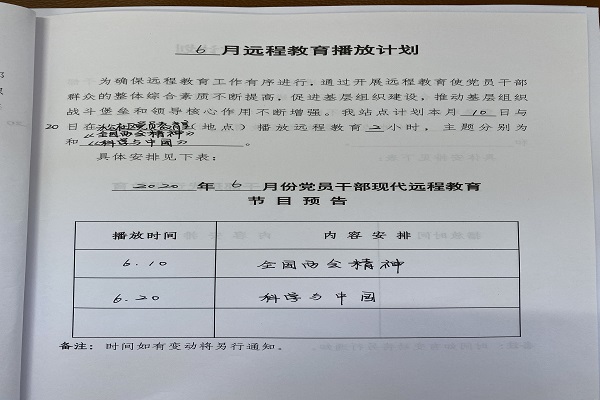 6 月远程教育播放计划
为确保远程教育工作有序进行，通过开展远程教育使党员干部
群众的整体综合素质不断提高，促进基层组织建设，推动基层组织
战斗堡垒和领导核心作用不断增强。我站点计划本月 10 日与
20 日在 （地点）播放远程教育 2 小时，主题分别为
《全国两会精神》
和 《科学与中国》 。
具体安排见下表：
2020 年 6 月份党员干部现代远程教育
节目预告
播放时间 内容安排
6.10 全国两会精神
6.20 科学与中国
备注：时间如有变动将另行通知。